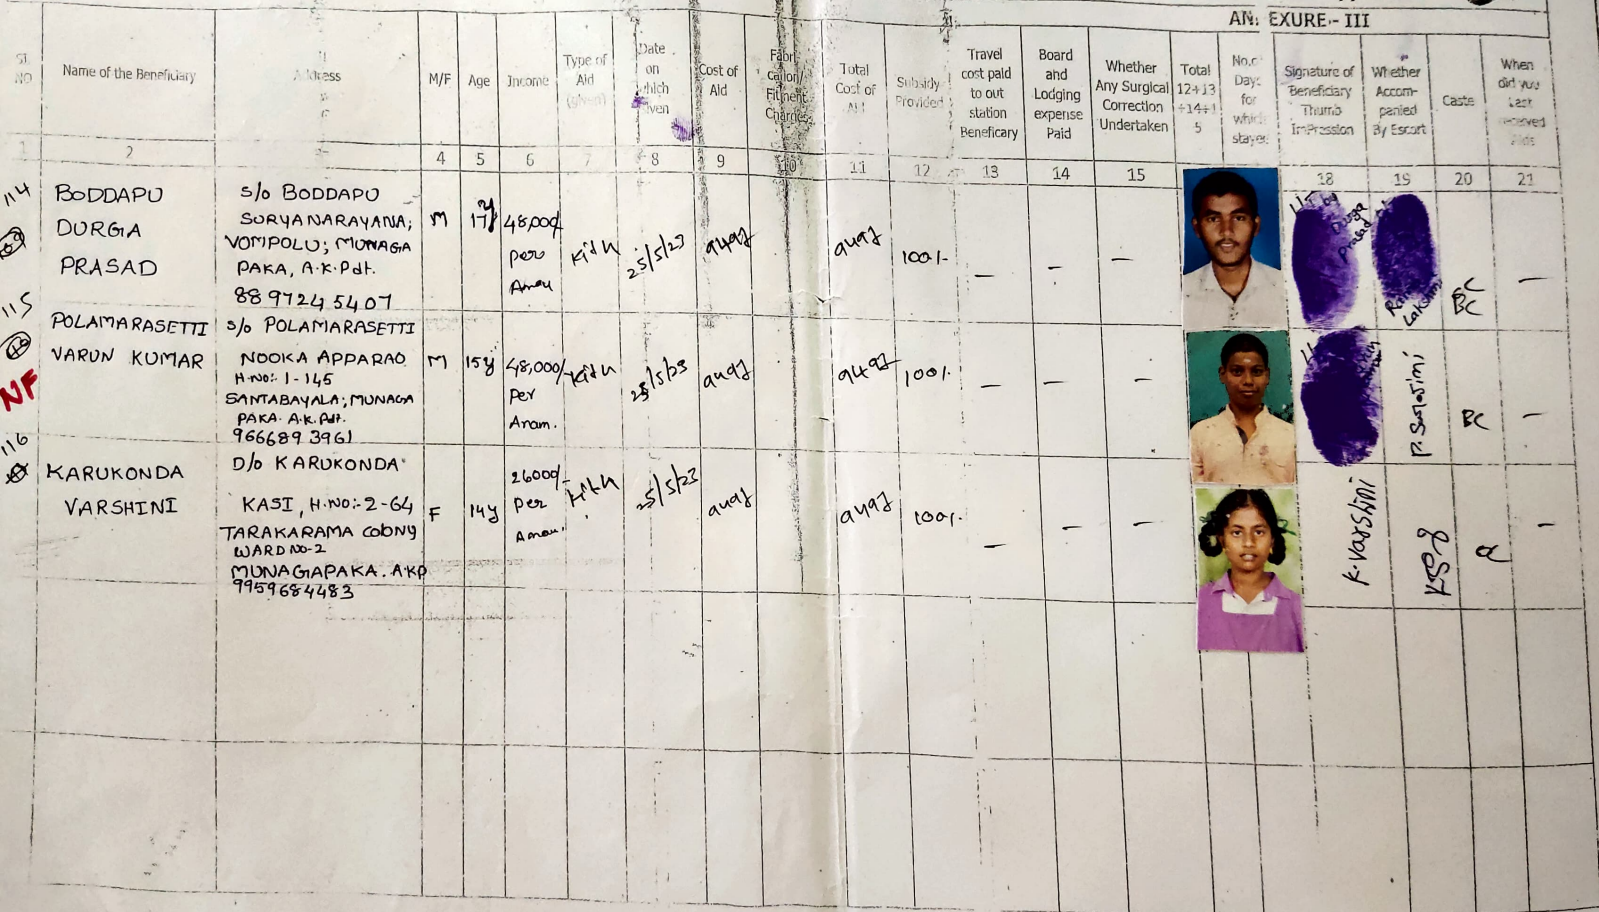 EXURE - III
Name of the Beneficiary
Address
M/F
Age
Income
Type of
Aid
(given)
Date
on
which
given
Cost of
Aid
Fabri
cation/
Fitment
Charges
Total
Cost of
Aid
Subsidy
Provided
Travel
cost paid
to out
station
Beneficary
Board
and
Lodging
expense
Paid
Whether
Any Surgical
Correction
Undertaken
Total
12+13
+14+1
5
Days
for
which
stayed
Signature of
Beneficiary
Thumb
ImPression
Whether
Accom-
panied
By Escort
Caste
When
did you
Last
received
Aids
1 2 4 5 6 7 8 9 10 11 12 13 14 15 18 19 20 21
114
BODDAPU
DURGA
PRASAD
S/o BODDAPU
SURYANARAYANA;
VOMPOLU; MUNAGA
PAKA, A.K.Pdt.
88 9724 5407
M
17y
48,000/
per
25/5/23
9497
9497
100%
—
—
—
Durga
Prasad
BC
—
115
NF
POLAMARASETTI
VARUN KUMAR
S/o POLAMARASETTI
NOOKA APPARAO
H.NO:- 1-145
SANTABAYALA; MUNAGA
PAKA. A.K.Pdt.
966689 3961
M
15y
48,000/-
Per
Anam.
25/5/23
9497
9497
100%
—
—
—
BC
—
116
KARUKONDA
VARSHINI
D/o KARUKONDA
KASI, H.NO:-2-64
TARAKARAMA COlONY
WARD NO-2
MUNAGAPAKA. AKP
9959684483
F
14y
26000/-
Per
25/5/23
9497
9497
100%
—
—
—
K.Varshini
—